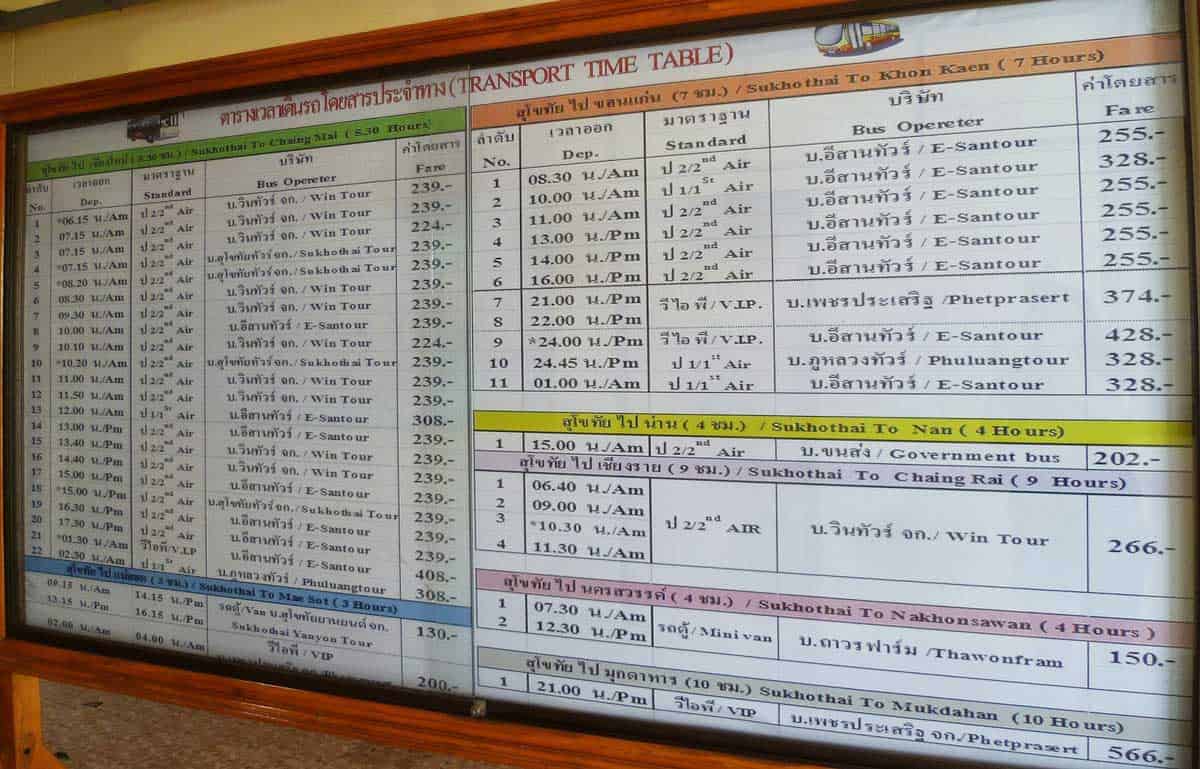 ตารางเวลาเดินรถโดยสารประจำทาง(TRANSPORT TIME TABLE)
สุโขทัย ไป เชียงใหม่ ( 5.30 ชม.) / Sukhothai To Chaing Mai ( 5.30 Hours)
ลำดับ เวลาออก มาตราฐาน บริษัท ค่าโดยสาร
No. Dep. Standard Bus Opereter Fare
1 *06.15 น./Am ป 2/2nd Air บ.วินทัวร์ จก. / Win Tour 239.-
2 07.15 น./Am ป 2/2nd Air บ.วินทัวร์ จก. / Win Tour 239.-
3 07.15 น./Am ป 2/2nd Air บ.วินทัวร์ จก. / Win Tour 224.-
4 *07.15 น./Am ป 2/2nd Air บ.สุโขทัยทัวร์ จก./Sukhothai Tour 239.-
5 *08.20 น./Am ป 2/2nd Air บ.สุโขทัยทัวร์ จก./Sukhothai Tour 239.-
6 08.30 น./Am ป 2/2nd Air บ.วินทัวร์ จก. / Win Tour 239.-
7 09.30 น./Am ป 2/2nd Air บ.วินทัวร์ จก. / Win Tour 239.-
8 10.00 น./Am ป 2/2nd Air บ.อีสานทัวร์ / E-Santour 239.-
9 10.10 น./Am ป 2/2nd Air บ.วินทัวร์ จก. / Win Tour 224.-
10 *10.20 น./Am ป 2/2nd Air บ.สุโขทัยทัวร์ จก./Sukhothai Tour 239.-
11 11.00 น./Am ป 2/2nd Air บ.วินทัวร์ จก. / Win Tour 239.-
12 11.50 น./Am ป 2/2nd Air บ.วินทัวร์ จก. / Win Tour 239.-
13 12.00 น./Am ป 1/1St Air บ.อีสานทัวร์ / E-Santour 308.-
14 13.00 น./Pm ป 2/2nd Air บ.อีสานทัวร์ / E-Santour 239.-
15 13.40 น./Pm ป 2/2nd Air บ.วินทัวร์ จก. / Win Tour 239.-
16 14.40 น./Pm ป 2/2nd Air บ.วินทัวร์ จก. / Win Tour 239.-
17 15.00 น./Pm ป 2/2nd Air บ.อีสานทัวร์ / E-Santour 239.-
18 *15.00 น./Pm ป 2/2nd Air บ.สุโขทัยทัวร์ จก./Sukhothai Tour 239.-
19 16.30 น./Pm ป 2/2nd Air บ.อีสานทัวร์ / E-Santour 239.-
20 17.30 น./Pm ป 2/2nd Air บ.อีสานทัวร์ / E-Santour 239.-
21 *01.30 น./Am วีไอพี/V.I.P บ.อีสานทัวร์ / E-Santour 408.-
22 02.30 น./Am ป 1/1St Air บ.ภูหลวงทัวร์ / Phuluangtour 308.-
สุโขทัย ไป แม่สอด ( 3 ชม.) / Sukhothai To Mae Sot ( 3 Hours)
09.15 น./Am 14.15 น./Pm รถตู้/Van บ.สุโขทัยยานยนต์ จก. 130.-
13.15 น./Pm 16.15 น./Pm Sukhothai Yanyon Tour
02.00 น./Am 04.00 น./Am วีไอพี / VIP 200.-
สุโขทัย ไป ขอนแก่น (7 ชม.) / Sukhothai To Khon Kaen ( 7 Hours)
ลำดับ เวลาออก มาตราฐาน บริษัท ค่าโดยสาร
No. Dep. Standard Bus Opereter Fare
1 08.30 น./Am ป 2/2nd Air บ.อีสานทัวร์ / E-Santour 255.-
2 10.00 น./Am ป 1/1St Air บ.อีสานทัวร์ / E-Santour 328.-
3 11.00 น./Am ป 2/2nd Air บ.อีสานทัวร์ / E-Santour 255.-
4 13.00 น./Pm ป 2/2nd Air บ.อีสานทัวร์ / E-Santour 255.-
5 14.00 น./Pm ป 2/2nd Air บ.อีสานทัวร์ / E-Santour 255.-
6 16.00 น./Pm ป 2/2nd Air บ.อีสานทัวร์ / E-Santour 255.-
7 21.00 น./Pm วีไอ พี / V.I.P. บ.เพชรประเสริฐ /Phetprasert 374.-
8 22.00 น./Pm
9 *24.00 น./Pm วีไอ พี / V.I.P. บ.อีสานทัวร์ / E-Santour 428.-
10 24.45 น./Pm ป 1/1st Air บ.ภูหลวงทัวร์ / Phuluangtour 328.-
11 01.00 น./Am ป 1/1st Air บ.อีสานทัวร์ / E-Santour 328.-
สุโขทัย ไป น่าน ( 4 ชม.) / Sukhothai To Nan ( 4 Hours)
1 15.00 น./Am ป 2/2nd Air บ.ขนส่ง / Government bus 202.-
สุโขทัย ไป เชียงราย ( 9 ชม.) / Sukhothai To Chaing Rai ( 9 Hours)
1 06.40 น./Am
2 09.00 น./Am
3 *10.30 น./Am ป 2/2nd AIR บ.วินทัวร์ จก./ Win Tour 266.-
4 11.30 น./Am
สุโขทัย ไป นครสวรรค์ ( 4 ชม.) / Sukhothai To Nakhonsawan ( 4 Hours )
1 07.30 น./Am รถตู้ / Mini van บ.ถาวรฟาร์ม /Thawonfram 150.-
2 12.30 น./Pm
สุโขทัย ไป มุกดาหาร (10 ชม.) Sukhothai To Mukdahan (10 Hours)
1 21.00 น./Pm วีไอพี / VIP บ.เพชรประเสริฐ จก./Phetprasert 566.-